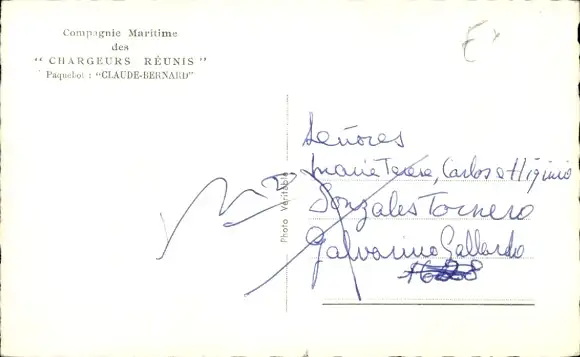 Compagnie Maritime
des
"CHARGEURS RÉUNIS"
Paquebot : "CLAUDE-BERNARD"
Ex
Photo Véritable
Señores
Maria Teresa, Carlos e Higinio
Gonzales Tornero
Galvarino Gallardo